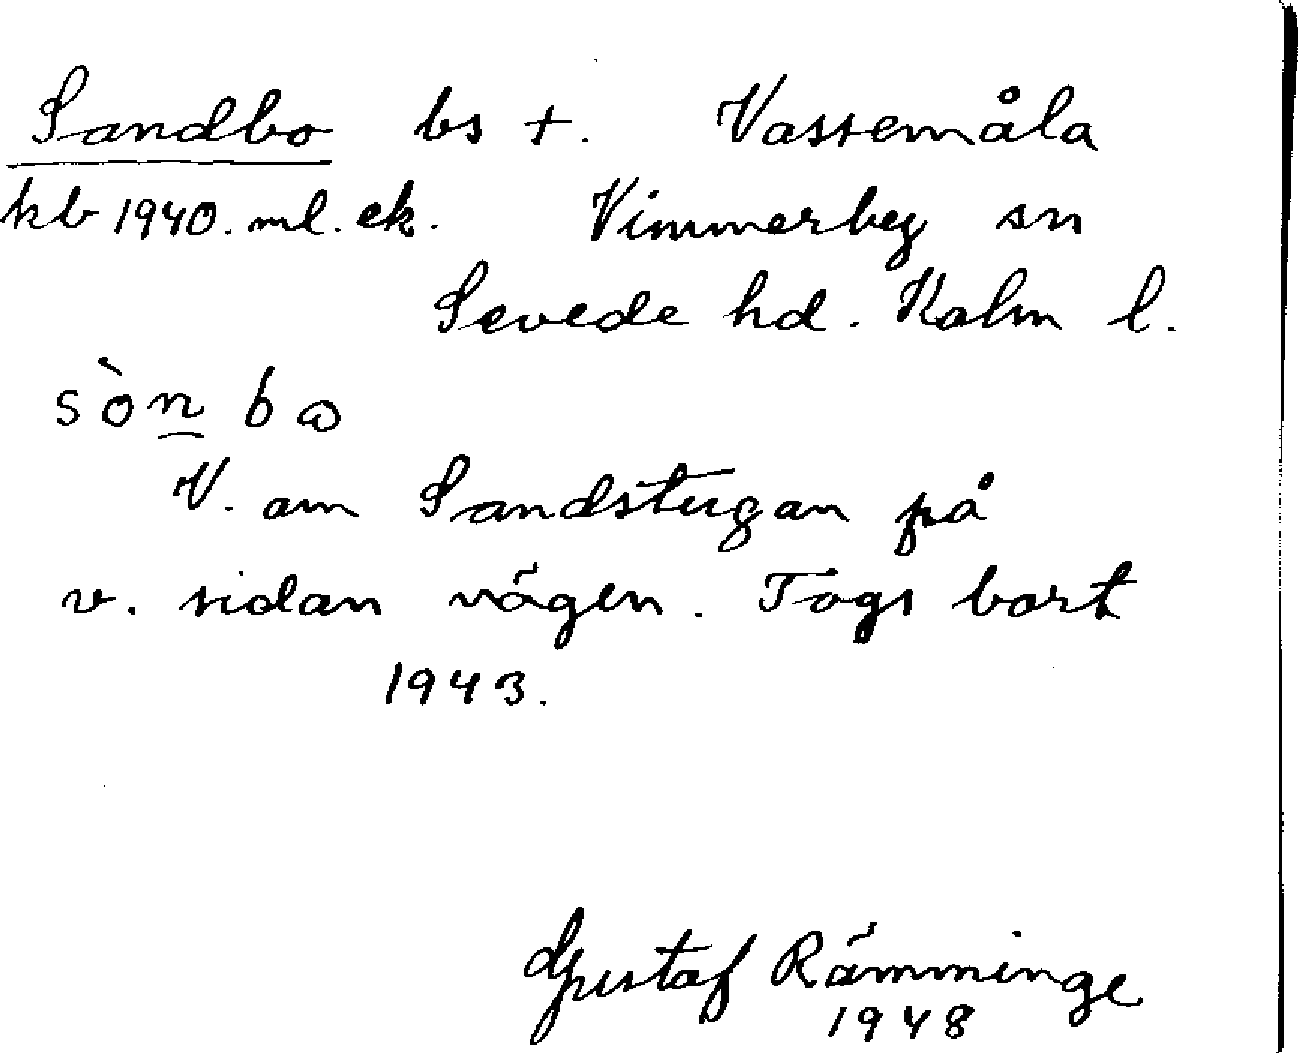 Sandbo bs +. Vassemåla
kb 1940. ml. ek. Vimmerby sn
Sevede hd. Kalm l.
sòn bo
V. om Sandstugan på
v. sidan vägen. Togs bort
1943.
Gustaf Rämminge
1948